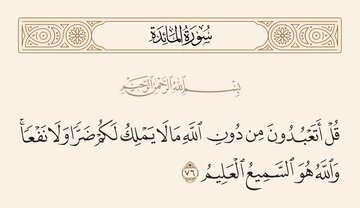 سُورَةُ المَائِدَةِ
بِسْمِ ٱللَّهِ ٱلرَّحْمَٰنِ ٱلرَّحِيمِ
قُلْ أَتَعْبُدُونَ مِن دُونِ ٱللَّهِ مَا لَا يَمْلِكُ لَكُمْ ضَرًّا وَلَا نَفْعًا ۚ
وَٱللَّهُ هُوَ ٱلسَّمِيعُ ٱلْعَلِيمُ ٧٦